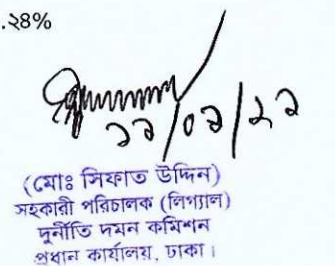 .২৪%
(মোঃ সিফাত উদ্দিন)
সহকারী পরিচালক (লিগ্যাল)
দুর্নীতি দমন কমিশন
প্রধান কার্যালয়, ঢাকা।